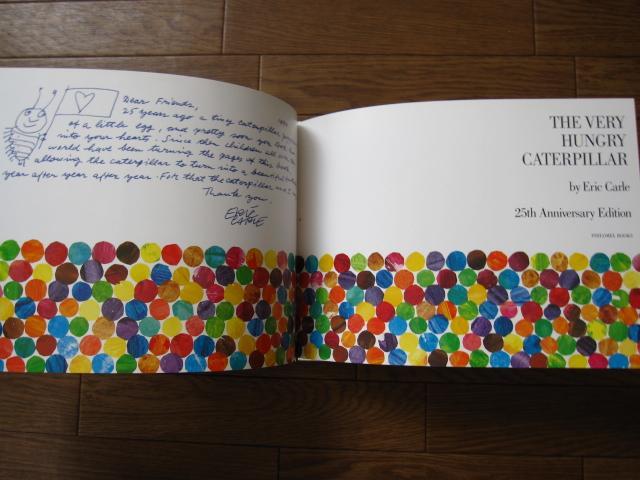 Dear Friends,
25 years ago a tiny caterpillar
of a little egg, and pretty soon you took him
into your heart. Since then children all over the
world have been turning the pages of this book
allowing the caterpillar to turn into a beautiful
year after year after year. For that the caterpillar and I
Thank you.
ERIC
CARLE
THE VERY
HUNGRY
CATERPILLAR
by Eric Carle
25th Anniversary Edition
PHILOMEL BOOKS